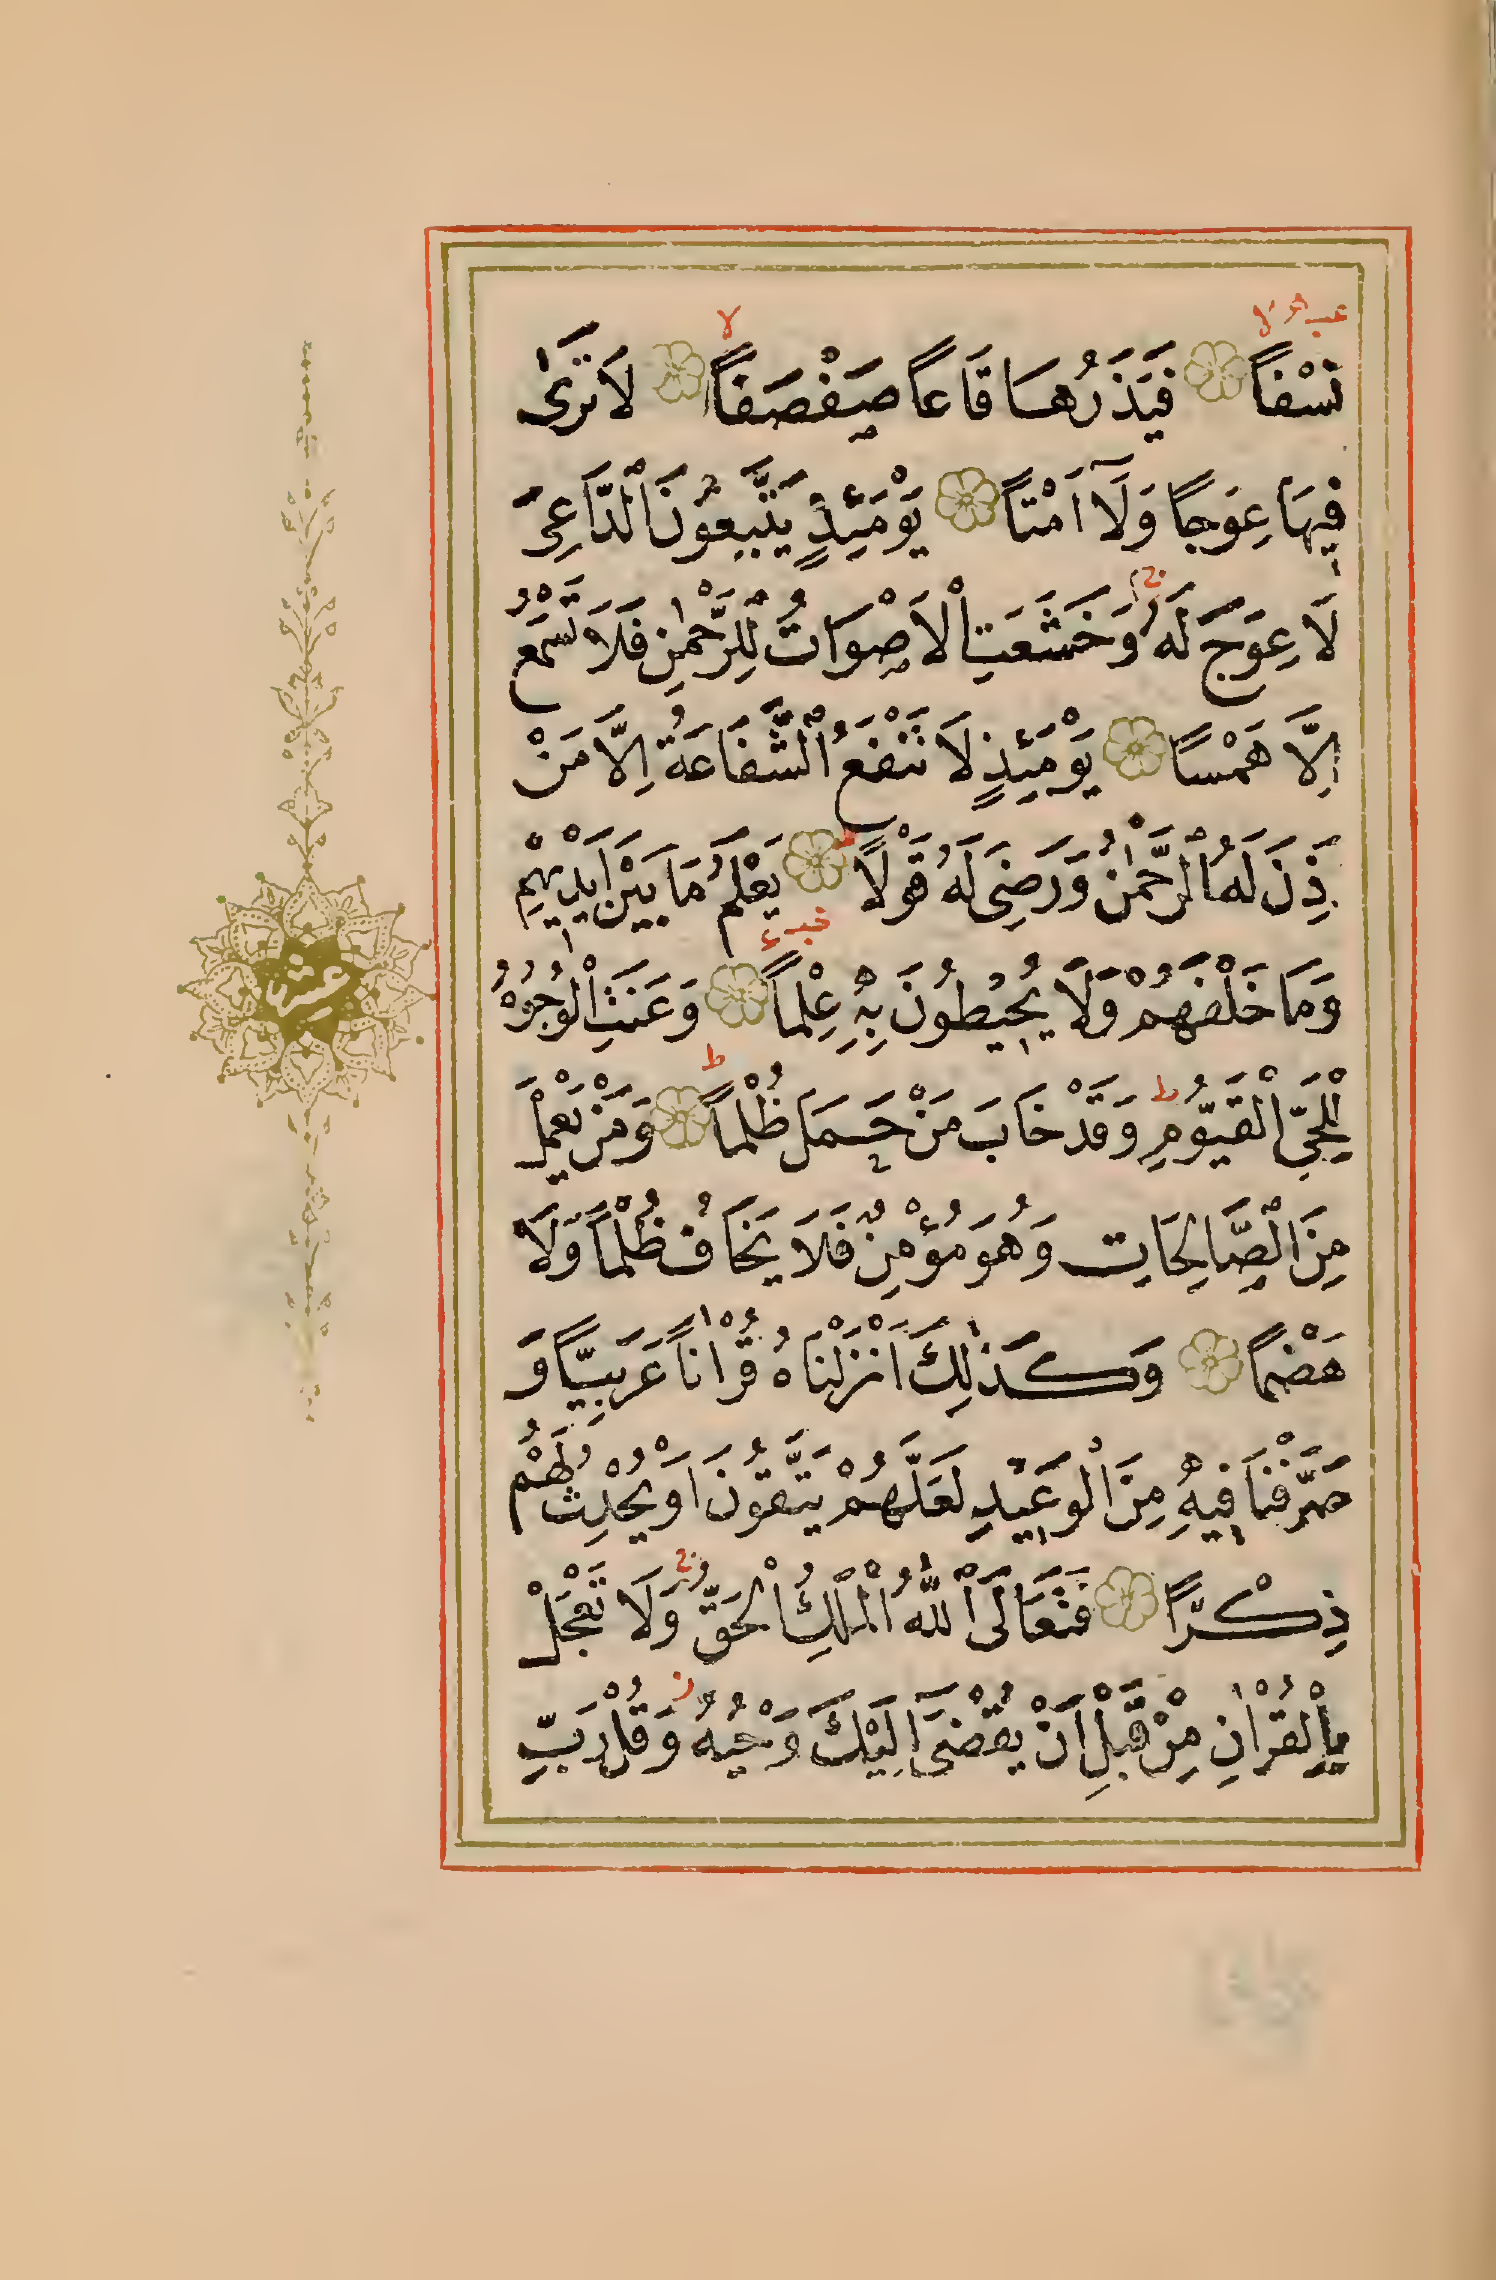 نَسْفاً فَيَذَرُهَا قَاعاً صَفْصَفاً لَا تَرٰى
فِيهَا عِوَجاً وَلَآ اَمْتاً يَوْمَئِذٍ يَتَّبِعُونَ الدَّاعِىَ
لَا عِوَجَ لَهُ وَخَشَعَتِ الْاَصْوَاتُ لِلرَّحْمٰنِ فَلَا تَسْمَعُ
اِلَّا هَمْساً يَوْمَئِذٍ لَا تَنْفَعُ الشَّفَاعَةُ اِلَّا مَنْ
اَذِنَ لَهُ الرَّحْمٰنُ وَرَضِىَ لَهُ قَوْلاً يَعْلَمُ مَا بَيْنَ اَيْدِيهِمْ
وَمَا خَلْفَهُمْ وَلَا يُحِيطُونَ بِهِ عِلْماً وَعَنَتِ الْوُجُوهُ
لِلْحَىِّ الْقَيُّومِ ط وَقَدْ خَابَ مَنْ حَمَلَ ظُلْماً وَمَنْ يَعْمَلْ
مِنَ الصَّالِحَاتِ وَهُوَ مُؤْمِنٌ فَلَا يَخَافُ ظُلْماً وَلَا
هَضْماً وَكَذٰلِكَ اَنْزَلْنَاهُ قُرْاٰناً عَرَبِيّاً وَ
صَرَّفْنَا فِيهِ مِنَ الْوَعِيدِ لَعَلَّهُمْ يَتَّقُونَ اَوْ يُحْدِثُ لَهُمْ
ذِكْراً فَتَعَالَى اللّٰهُ الْمَلِكُ الْحَقُّ وَلَا تَعْجَلْ
بِالْقُرْاٰنِ مِنْ قَبْلِ اَنْ يُقْضٰٓى اِلَيْكَ وَحْيُهُ وَقُلْ رَبِّ